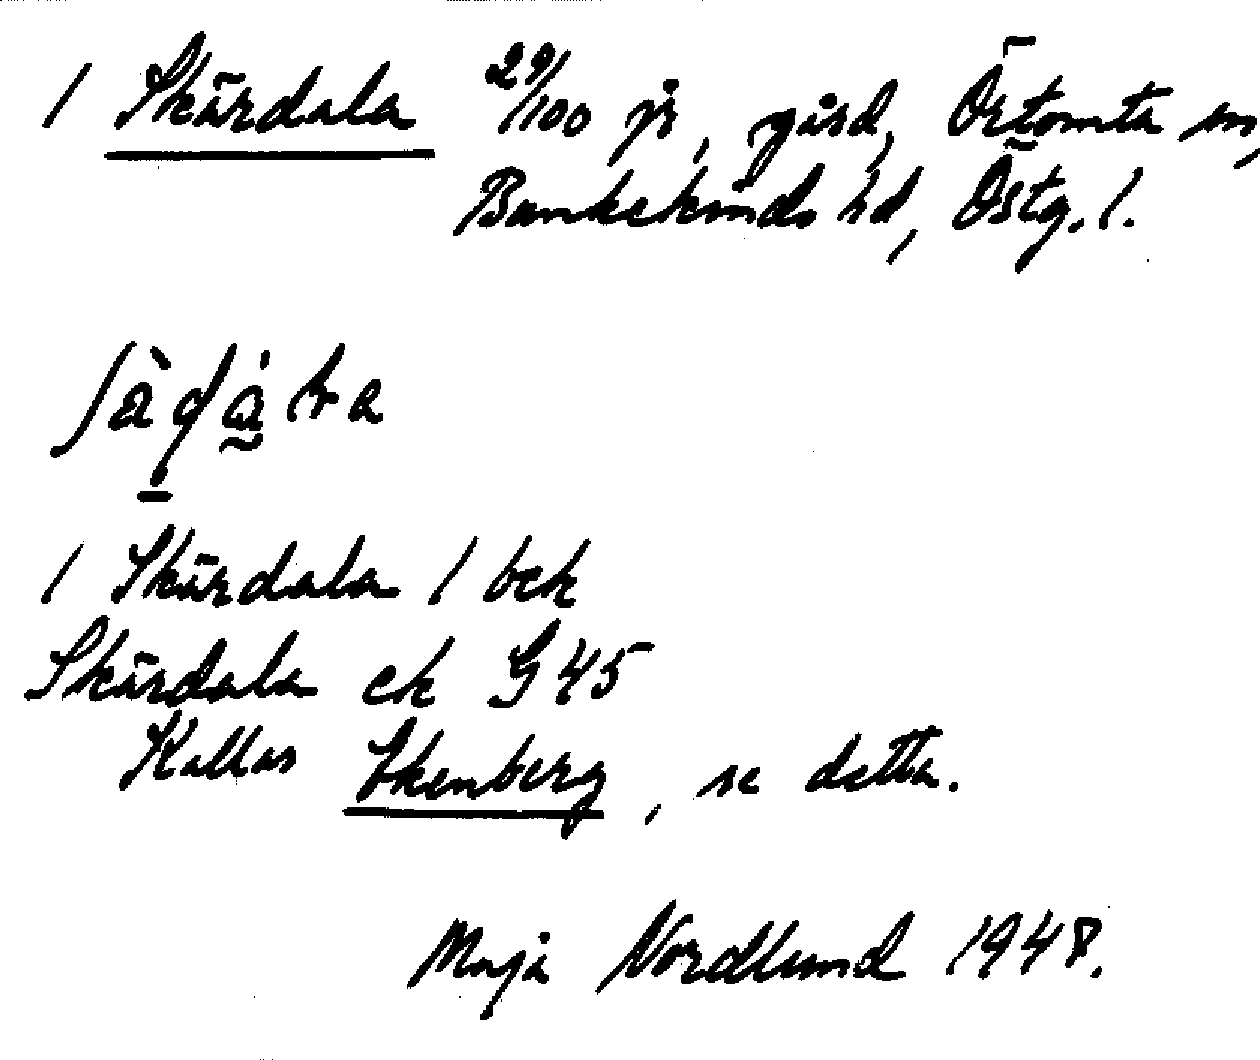 / Skärdala 29/100 js, gård, Örtomta sn,
Bankekinds hd, Östg. l.
/ Skärdala / bek
Skärdala ek G 45
Kallas Ekenberg, se detta.
Maja Nordlund 1948.